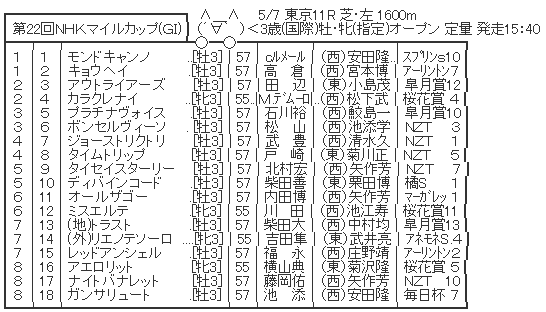 第22回NHKマイルカップ(GI) 5/7 東京11R 芝・左 1600m
(´∀`) <3歳(国際)牡・牝(指定)オープン 定量 発走15:40
1 1 モンドキャンノ ..[牡3] 57 cルメール (西)安田隆.. スプリンs10
1 2 キョウヘイ [牡3] 57 高 倉 (西)宮本博 アーリントン7
2 3 アウトライアーズ [牡3] 57 田 辺 (東)小島茂 皐月賞12
2 4 カラクレナイ [牝3] 55.. Mデムーロ (西)松下武 桜花賞 4
3 5 プラチナヴォイス [牡3] 57 石川裕 (西)鮫島一 皐月賞10
3 6 ボンセルヴィーソ [牡3] 57 松 山 (西)池添学 NZT 3
4 7 ジョーストリクトリ [牡3] 57 武 豊 (西)清水久 NZT 1
4 8 タイムトリップ [牡3] 57 戸 崎 (東)菊川正 NZT 5
5 9 タイセイスターリー [牡3] 57 北村宏 (西)矢作芳 NZT 7
5 10 ディバインコード [牡3] 57 柴田善 (東)栗田博 橘S 1
6 11 オールザゴー [牡3] 57 内田博 (西)矢作芳 マーガレッ 1
6 12 ミスエルテ [牝3] 55 川 田 (西)池江寿 桜花賞11
7 13 (地)トラスト [牡3] 57 柴田大 (西)中村均 皐月賞13
7 14 (外)リエノテソーロ ....[牝3] 55 吉田隼 (東)武井亮 アネモネS.4
7 15 レッドアンシェル [牡3] 57 福 永 (西)庄野靖 アーリントン2
8 16 アエロリット [牝3] 55 横山典 (東)菊沢隆 桜花賞 5
8 17 ナイトバナレット [牡3] 57 藤岡佑 (西)矢作芳 NZT 10
8 18 ガンサリュート [牡3] 57 池 添 (西)安田隆 毎日杯 7